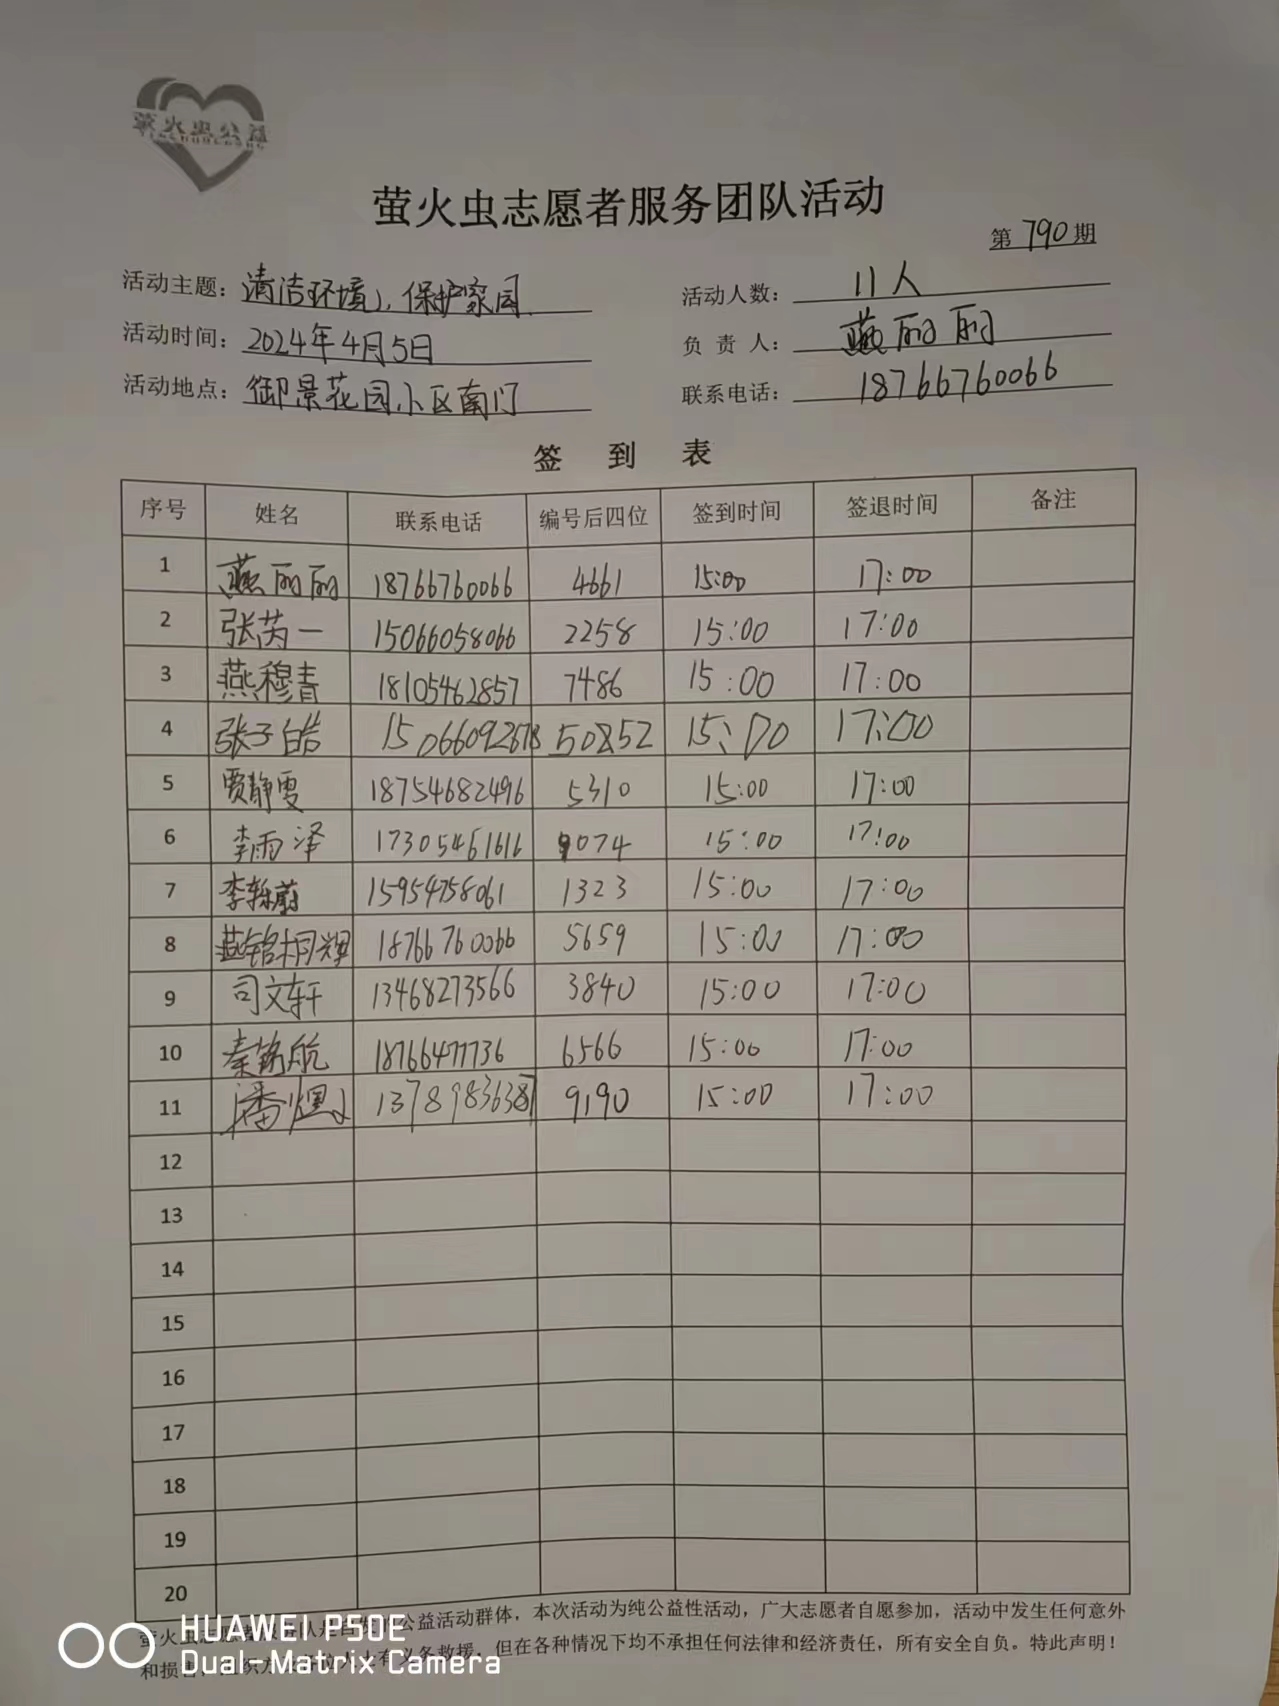 萤火虫公益
萤火虫志愿者服务团队活动
第 790 期
活动主题：清洁环境，保护家园 活动人数：11人
活动时间：2024年4月5日 负责人：燕丽丽
活动地点：御景花园小区南门 联系电话：18766760066
签到表
序号 姓名 联系电话 编号后四位 签到时间 签退时间 备注
1 燕丽丽 18766760066 4661 15:00 17:00
2 张芮一 15066058066 2258 15:00 17:00
3 燕穆青 18105462857 7486 15:00 17:00
4 张子皓 15:00 17:00
5 贾静雯 18754682496 5310 15:00 17:00
6 李雨泽 17305461616 9074 15:00 17:00
7 15954758061 1323 15:00 17:00
8 18766760066 5659 15:00 17:00
9 司文轩 13468273566 3840 15:00 17:00
10 秦铭航 18766477736 6566 15:00 17:00
11 潘煜 9190 15:00 17:00
12
13
14
15
16
17
18
19
20
公益活动群体，本次活动为纯公益性活动，广大志愿者自愿参加，活动中发生任何意外
和损害，但在各种情况下均不承担任何法律和经济责任，所有安全自负。特此声明！
HUAWEI P50E
Dual-Matrix Camera